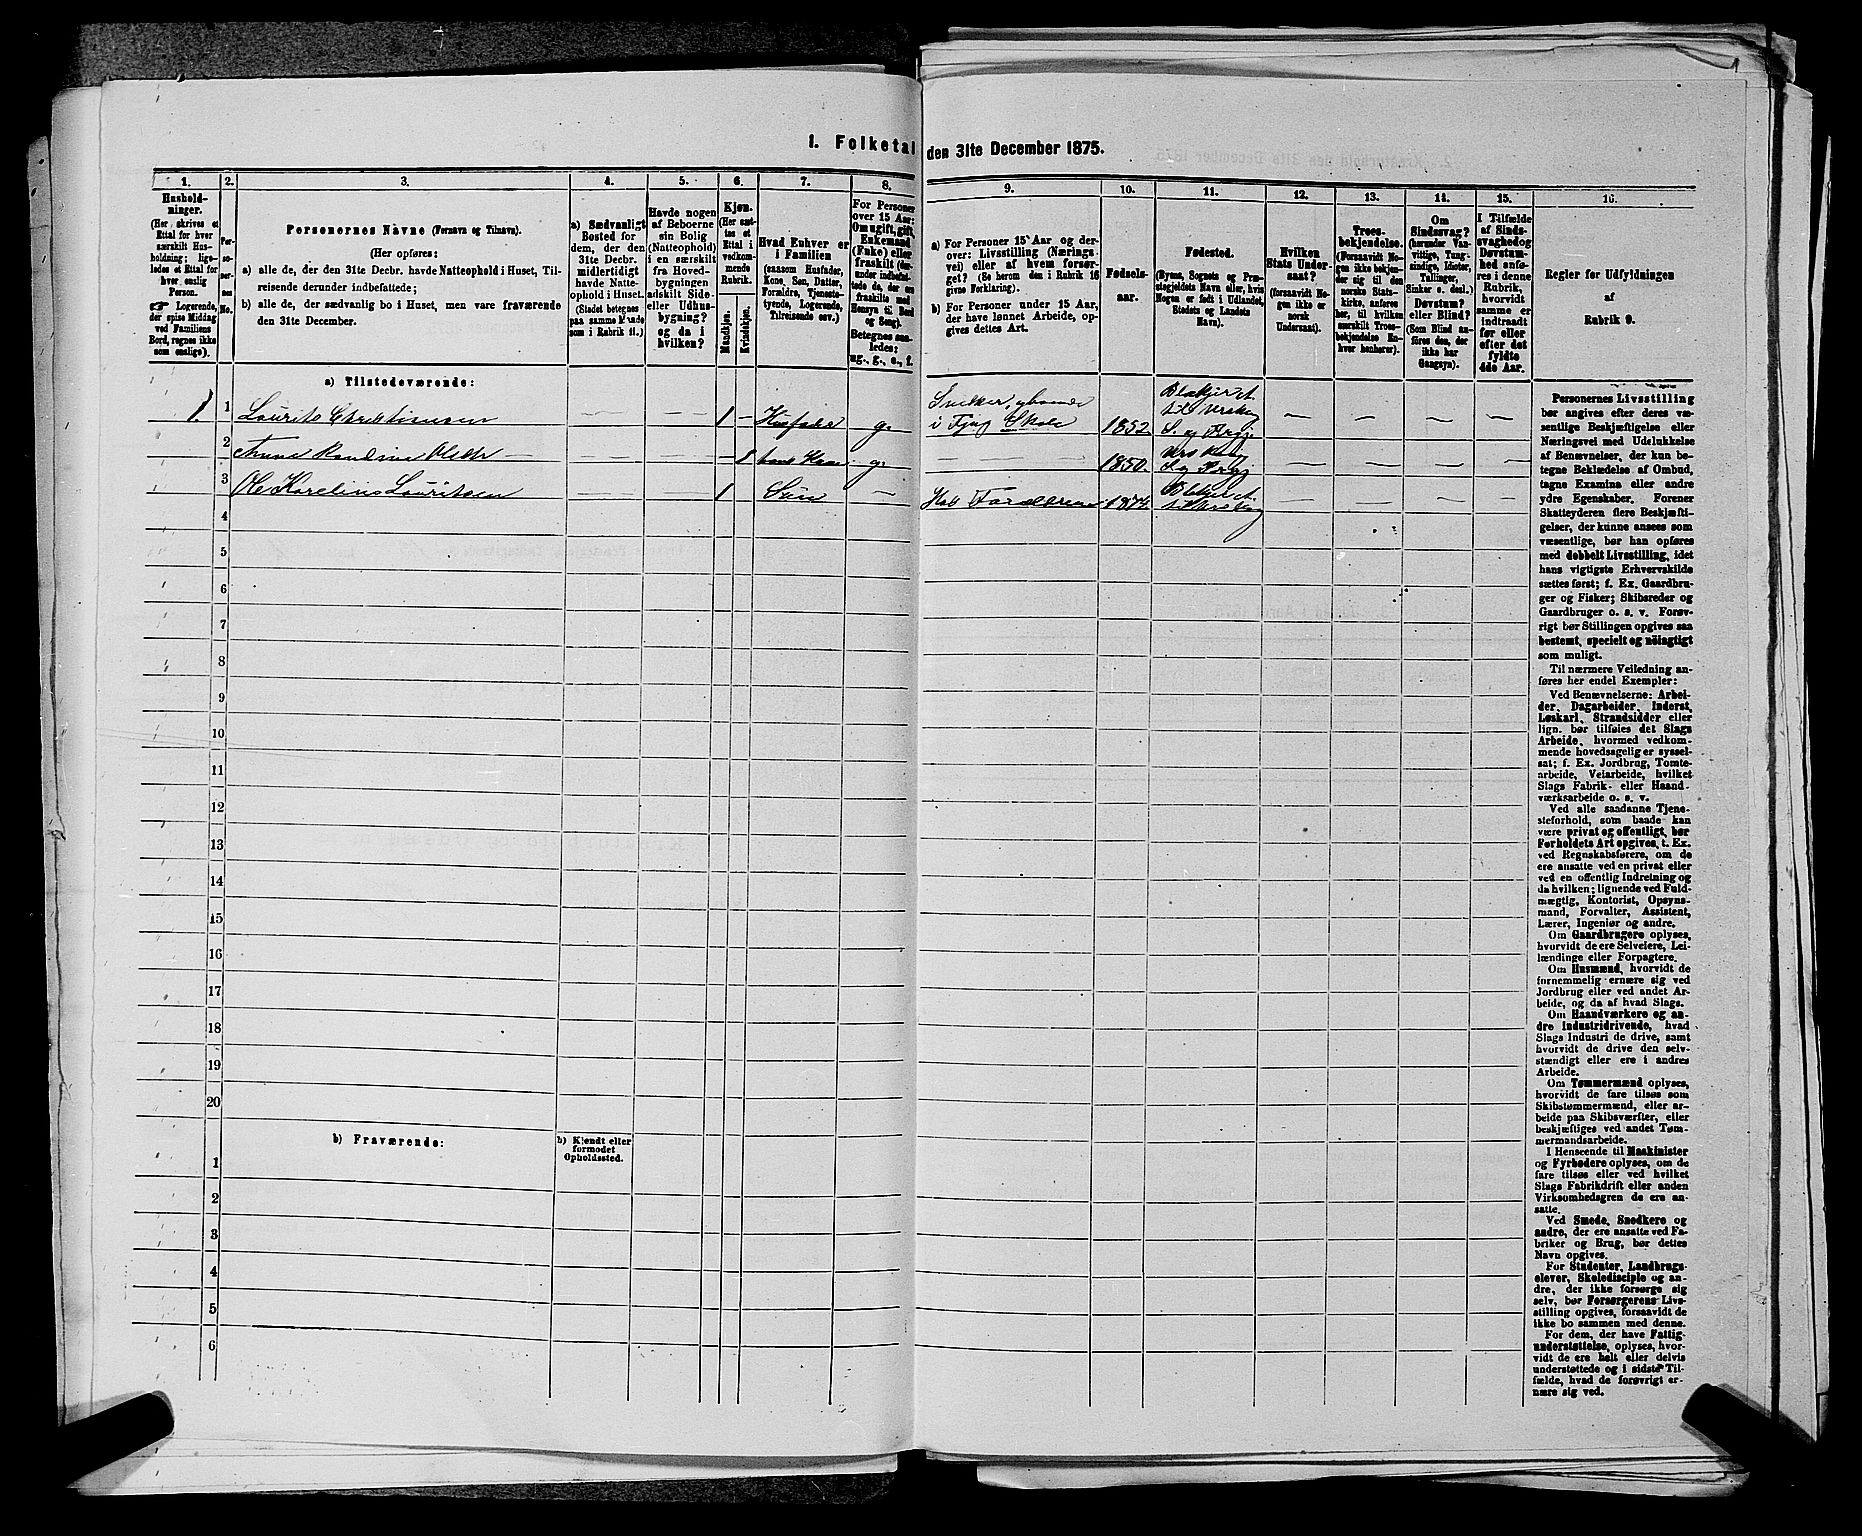 1. Folketal
den 31te December 1875.
1.
2.
3.
4.
5.
6.
7.
8.
9.
10.
11.
12.
13.
14.
15.
16.
Husholdninger.
(Her skrives et
Ettal for hver
særskilt Husholdning; ligeledes et Ettal for
hver enslig
Person.
Logerende,
der spise Middag
ved Familiens
Bord, regnes ikke
som enslige).
Personernes No.
Personernes Navne (Fornavn og Tilnavn).
(Her opføres:
a) alle de, der den 31te Decbr. havde Natteophold i Huset, Tilreisende derunder indbefattede;
b) alle de, der sædvanlig bo i Huset, men vare fraværende
den 31te December.
a) Sædvanligt
Bosted for
dem, der den
31te Decbr.
midlertidigt
havde Natteophold i Huset.
(Stedet betegnes
paa samme Maade
som i Rubrik 11.)
Havde nogen
af Beboerne
sin Bolig
(Natteophold)
i en særskilt
fra Hovedbygningen
adskilt Side- eller Udhusbygning?
og da i
hvilken?
Kjøn.
(Her sættes et
Ettal i
vedkommende
Rubrik.
Mandkjøn.
Kvindekjøn.
Hvad Enhver er
i Familien
(saasom Husfader,
Kone, Søn, Datter,
Forældre, Tjenestetyende, Logerende,
Tilreisende osv.)
For Personer
over 15 Aar:
Om ugift, gift,
Enkemand
(Enke) eller
fraskilt (derunder indbefattede de, der ere
fraskilte med
Hensyn til Bord
og Seng).
Betegnes saaledes:
ug., g., e., f.
a) For Personer 15 Aar og derover: Livsstilling (Næringsvei) eller af hvem forsørget? (Se herom den i Rubrik 16
givne Forklaring).
b) For Personer under 15 Aar,
der have lønnet Arbeide, opgives dettes Art.
Fødselsaar.
Fødested.
(Byens, Sognets og Præstegjeldets Navn eller, hvis
Nogen er født i Udlandet,
Stedets og Landets
Navn).
Hvilken
Stats Undersaat?
(forsaavidt Nogen ikke er
norsk
Undersaat).
Troesbekjendelse.
(Forsaavidt Nogen ikke bekjender sig til den
norske Statskirke, anføres
her, til hvilken
særskilt Troesbekjendelse Enhver henhører).
Om
Sindssvag?
(herunder Vanvittige, Tungsindige, Idioter,
Tallinger,
Sinker o. desl.)
Døvstum?
eller Blind?
(Som Blind anføres den, der
ikke har
Gangsyn).
I Tilfælde
af Sindssvaghed og
Døvstumhed anføres i denne
Rubrik,
hvorvidt
samme er
indtraadt
før eller
efter det
fyldte
4de Aar.
Regler for Udfyldningen
af
Rubrik 9.
a) Tilstedeværende:
1. 1 Laurits Christiansen — — 1 — Husfader g. Snedker
i Skole 1852
2 Anna Randine Olsdtr — — 1 hans Kone g. — 1850
3 Ole Karelius Lauritsen — — 1 Søn — Hos Forældrene 1874
4
5
6
7
8
9
10
11
12
13
14
15
16
17
18
19
20
b) Fraværende:
b) Kjendt eller
formodet
Opholdssted.
1
2
3
4
5
6
Personernes Livsstilling
bør angives efter deres væsentlige Beskjæftigelse eller
Næringsvei med Udelukkelse
af Benævnelser, der kun betegne Beklædelse af Ombud,
tagne Examina eller andre
ydre Egenskaber. Forener
Skatteyderen flere Beskjæftigelser, der kunne ansees som
væsentlige, bør han opføres
med dobbelt Livsstilling, idet
hans vigtigste Erhvervskilde
sættes først; f. Ex. Gaardbruger og Fisker; Skibsreder og
Gaardbruger o. s. v. Forøvrigt bør Stillingen opgives saa
bestemt, specielt og nöiagtigt
som muligt.
Til nærmere Veiledning anføres her endel Exempler:
Ved Benævnelserne: Arbeider, Dagarbeider, Inderst,
Løskarl, Strandsidder eller
lign. bør tilføies det Slags
Arbeide, hvormed vedkommende hovedsagelig er sysselsat; f. Ex. Jordbrug, Tomtearbeide, Veiarbeide, hvilket
Slags Fabrik- eller Haandværksarbeide o. s. v.
Ved alle saadanne Tjenesteforhold, som baade kan
være privat og offentligt, bør
Forholdets Art opgives, t. Ex.
ved Regnskabsførere, om de
ere ansatte ved en privat eller
ved en offentlig Indretning og
da hvilken; lignende ved Fuldmægtig, Kontorist, Opsynsmand, Forvalter, Assistent,
Lærer, Ingeniør og andre.
Om Gaardbrugere oplyses,
hvorvidt de ere Selveiere, Leilændinge eller Forpagtere.
Om Husmænd, hvorvidt de
fornemmelig ernære sig ved
Jordbrug eller ved andet Arbeide, og da af hvad Slags.
Om Haandværkere og andre Industridrivende, hvad
Slags Industri de drive, samt
hvorvidt de drive den selvstændigt eller ere i andres
Arbeide.
Om Tømmermænd oplyses,
hvorvidt de fare tilsøs som
Skibstømmermænd, eller arbeide paa Skibsværfter, eller
beskjæftiges ved andet Tømmermandsarbeide.
I Henseende til Maskinister
og Fyrbødere oplyses, om de
fare tilsøs eller ved hvilket
Slags Fabrikdrift eller anden
Virksomhedsgren de ere ansatte.
Ved Smede, Snedkere og
andre, der ere ansatte ved Fabriker og Brug, bør dettes
Navn opgives.
For Studenter, Landbrugselever, Skoledisciple og andre, der ikke forsørge sig
selv, bør Forsørgerens Livsstilling opgives, forsaavidt de
ikke bo sammen med denne.
For dem, der have Fattigunderstøttelse, oplyses, hvorvidt de ere helt eller delvis
understøttede og i sidste Tilfælde, hvad de forøvrigt ernære sig ved.